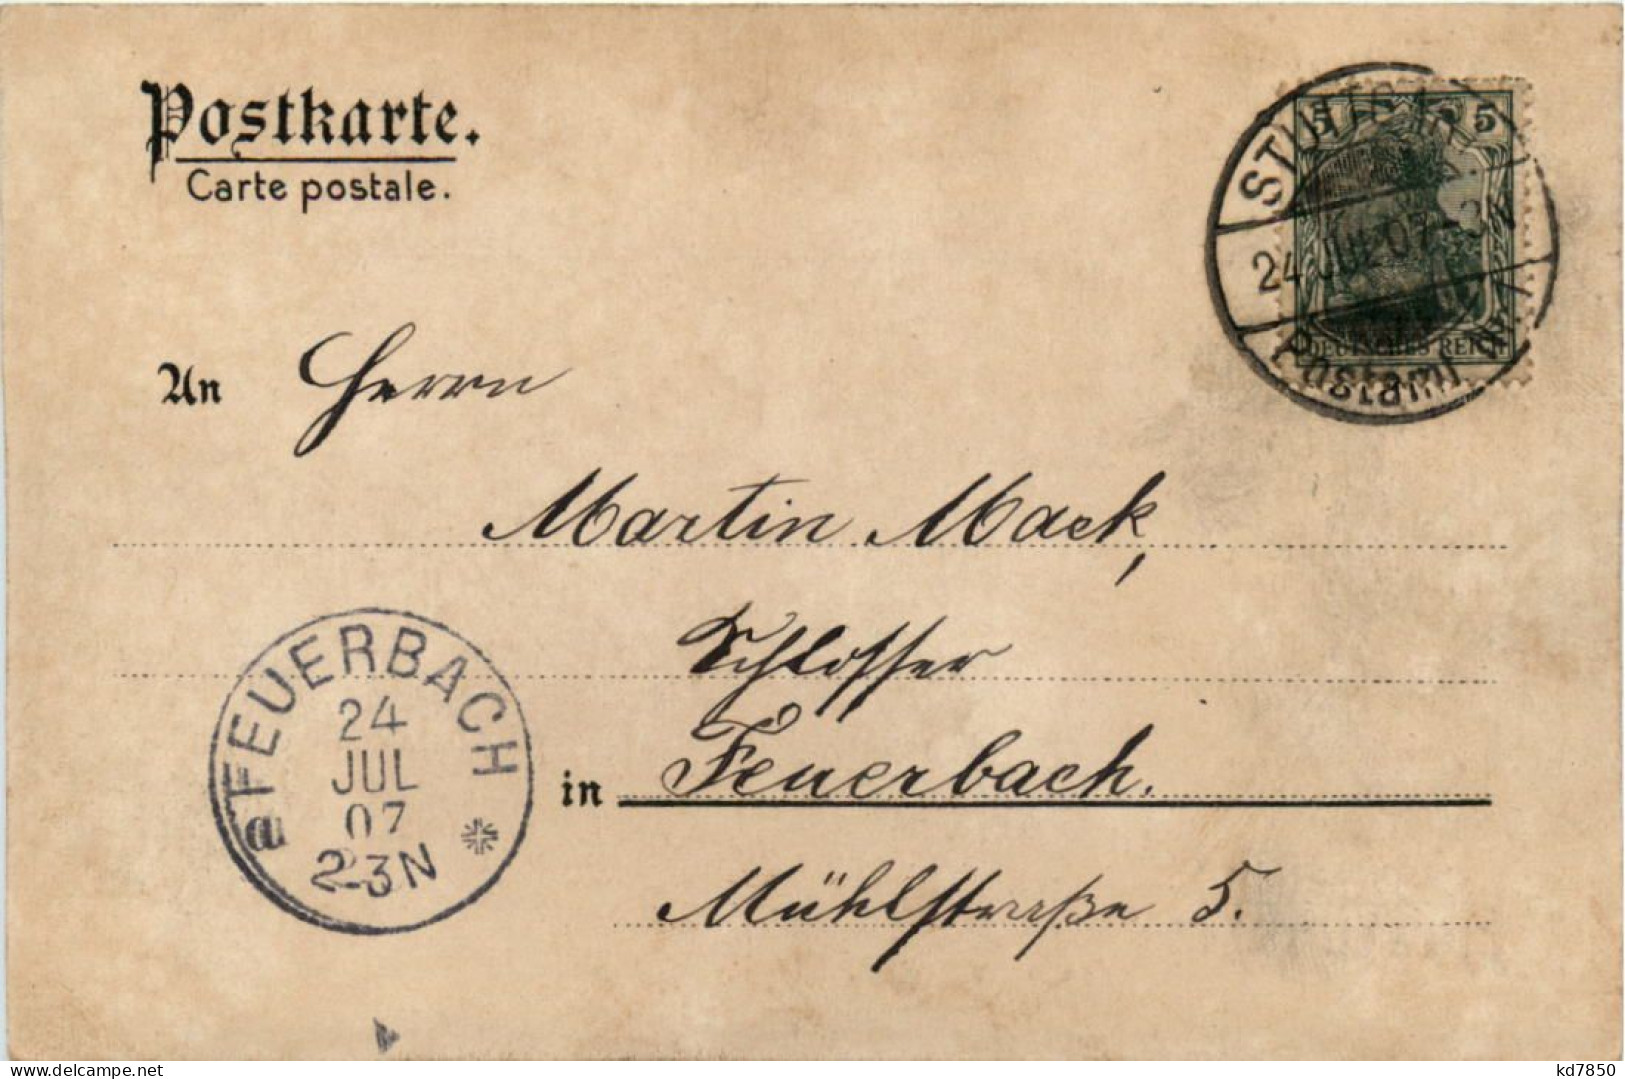 Postkarte.
Carte postale.
5 5
DEUTSCHES REICH
24 JUL 07
Postamt
An Herrn
Martin Mack,
Schlosser
in Feuerbach.
Mühlstraße 5.
FEUERBACH
24
JUL
07
2-3N
a
delcampe.net
kd7850